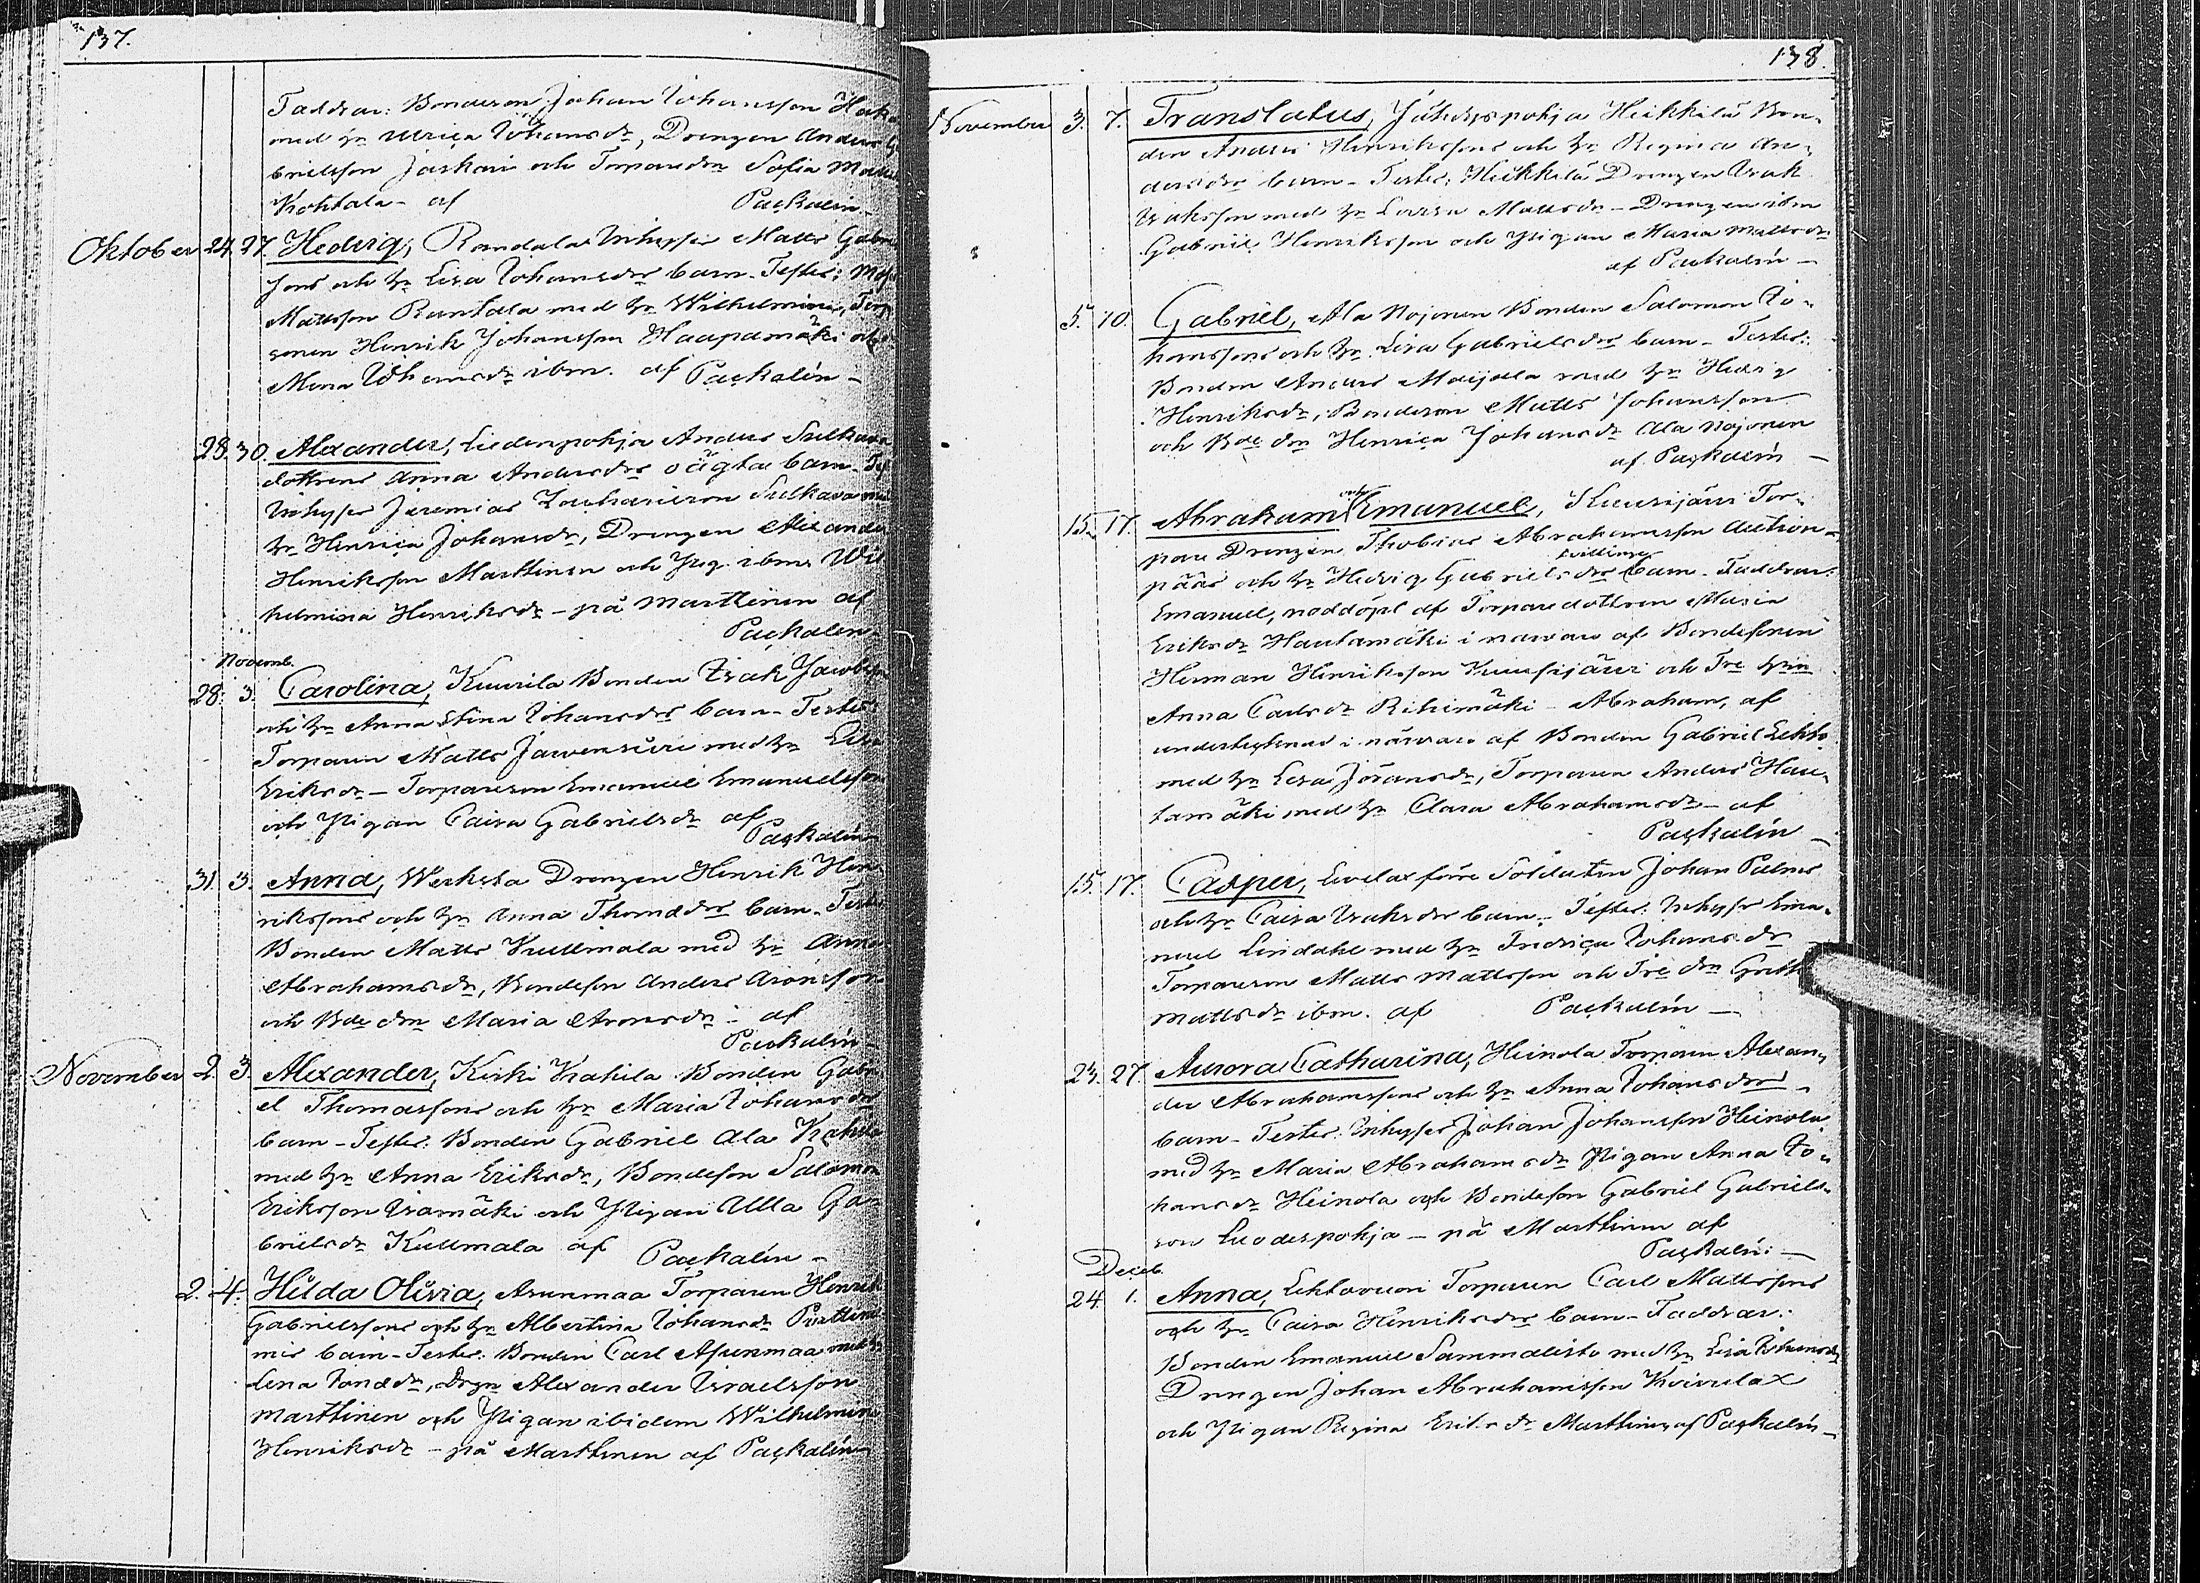 137.
Faddrar: Bonderson Johan Johansson
med h. Ulrica Johansdr, Drengen Anders
brielsson Jaskari och Torparedrn Sofia
Kohtala - af Paskalin -
Oktober 24. 27. Hedvig, Inhyses Matts
sons och h. Lisa Johansdrs barn. Testes:
Mattsson Rantala med h. Wilhelmina,
sonen Henrik Johansson Haapamäki och
Mina Johansdr ibm. af Paskalin -
28. 30. Alexander, Liedenpohja Anders Sulkava
dottrens Anna Andersdrs oägta barn -
Inhyses Jeremias Sulkava
h. Henrica Johansdr, Drengen Alexander
Henriksson Marttinen och Pig. ibm Wil
helmina Henriksdr - på Marttinen af
Paskalin -
Novemb.
28. 3. Carolina, Kuurila Bonden Isak
och h. Anna Stina Johansdrs barn - Testes:
Torparen Matts med h. Lisa
Eriksdr - Torpareson Emanuel Emanuelsson
och Pigan Caisa Gabrielsdr af
Paskalin
31. 3. Anna, Drengen Henrik Hen
rikssons och h. Anna Thomædrs barn. Testes
Bonden Matts Kullmala med h. Anna
Abrahamsdr, Bondeson Anders Aronsson
och Bde drn Maria Aronsdr - af
Paskalin -
November 2. 3. Alexander, Keski Krakila Bonden Gabri
el Thomassons och h. Maria Johansdrs
barn - Testes: Bonden Gabriel Ala
med h. Anna Eriksdr, Bondeson Salomon
Eriksson Isamäki och Pigan Ulla Ga
brielsdr Kullmala af Paskalin -
2. 4. Hilda Olivia, Asunmaa Torparen Henrik
Gabrielssons och h. Albertina Johansdr
mis barn - Testes: Bonden Carl Asunmaa med h.
Lena, Drgn Alexander Israelsson
Marttinen och Pigan ibidem Wilhelmina
Henriksdr - på Marttinen af Paskalin -
138.
November 3. 7. Translatus, Heikkilä Bon-
den Anders Henrikssons och h. Regina An-
dersdrs barn - Testes: Heikkilä Drengen Isak
Isaksson med h. Lovisa Mattsdr - Drengen ibm
Gabriel Henriksson och Pigan Maria Mattsdr
af Paskalin -
5. 10. Gabriel, Ala Nojonen Bonden Salomon Jo-
hanssons och h. Lisa Gabrielsdrs barn - Testes:
Bonden Anders Maijala med h. Hedvig
Henriksdr, Bondeson Matts Johansson
och Bde drn Henrica Johansdr Ala Nojonen
af Paskalin -
15. 17. Abraham och Emanuel, Kuusijärvi Tor-
pare Drengen Thobias Abrahamsson Aution-
pääs och h. Hedvig Gabrielsdrs tvillinge barn - Faddrar:
Emanuel, nöddöpt af Torparedottren Maria
Eriksdr Hautamäki i närvaro af Bondesonen
Herman Henriksson Kuusijärvi och Tre hrin
Anna Carlsdr Rihimäki - Abraham, af
undertecknad i närvaro af Bonden Gabriel Lehto
med h. Lisa Göransdr, Torparen Anders Hau-
tamäki med h. Clara Abrahamsdr - af
Paskalin -
15. 17. Casper, Soldaten Johan Palms
och h. Caisa Isaksdrs barn - Testes: Inhyses Ema-
nuel Lindahl med h. Fredrica Johansdr -
Torpareson Matts Mattsson och Tre drn Greth
Mattsdr ibm. af Paskalin -
23. 27. Aurora Catharina, Heinola Torparen Alexan-
der Abrahamssons och h. Anna Johansdrs
barn - Testes: Inhyses Johan Johansson Heinola
med h. Maria Abrahamsdr Pigan Anna Jo-
hansdr Heinola och Bondeson Gabriel Gabriels-
son Luodespohja - på Marttinen af
Paskalin: -
Deceb.
24. 1. Anna, Lehtovuori Torparen Carl Mattssons
och h. Caisa Henriksdrs barn - Faddrar:
Bonden Emanuel Sammalisto med h. Lisa Johansdr
Drengen Johan Abrahamsson Koivulax
och Pigan Regina Eriksdr Marttinen af Paskalin -